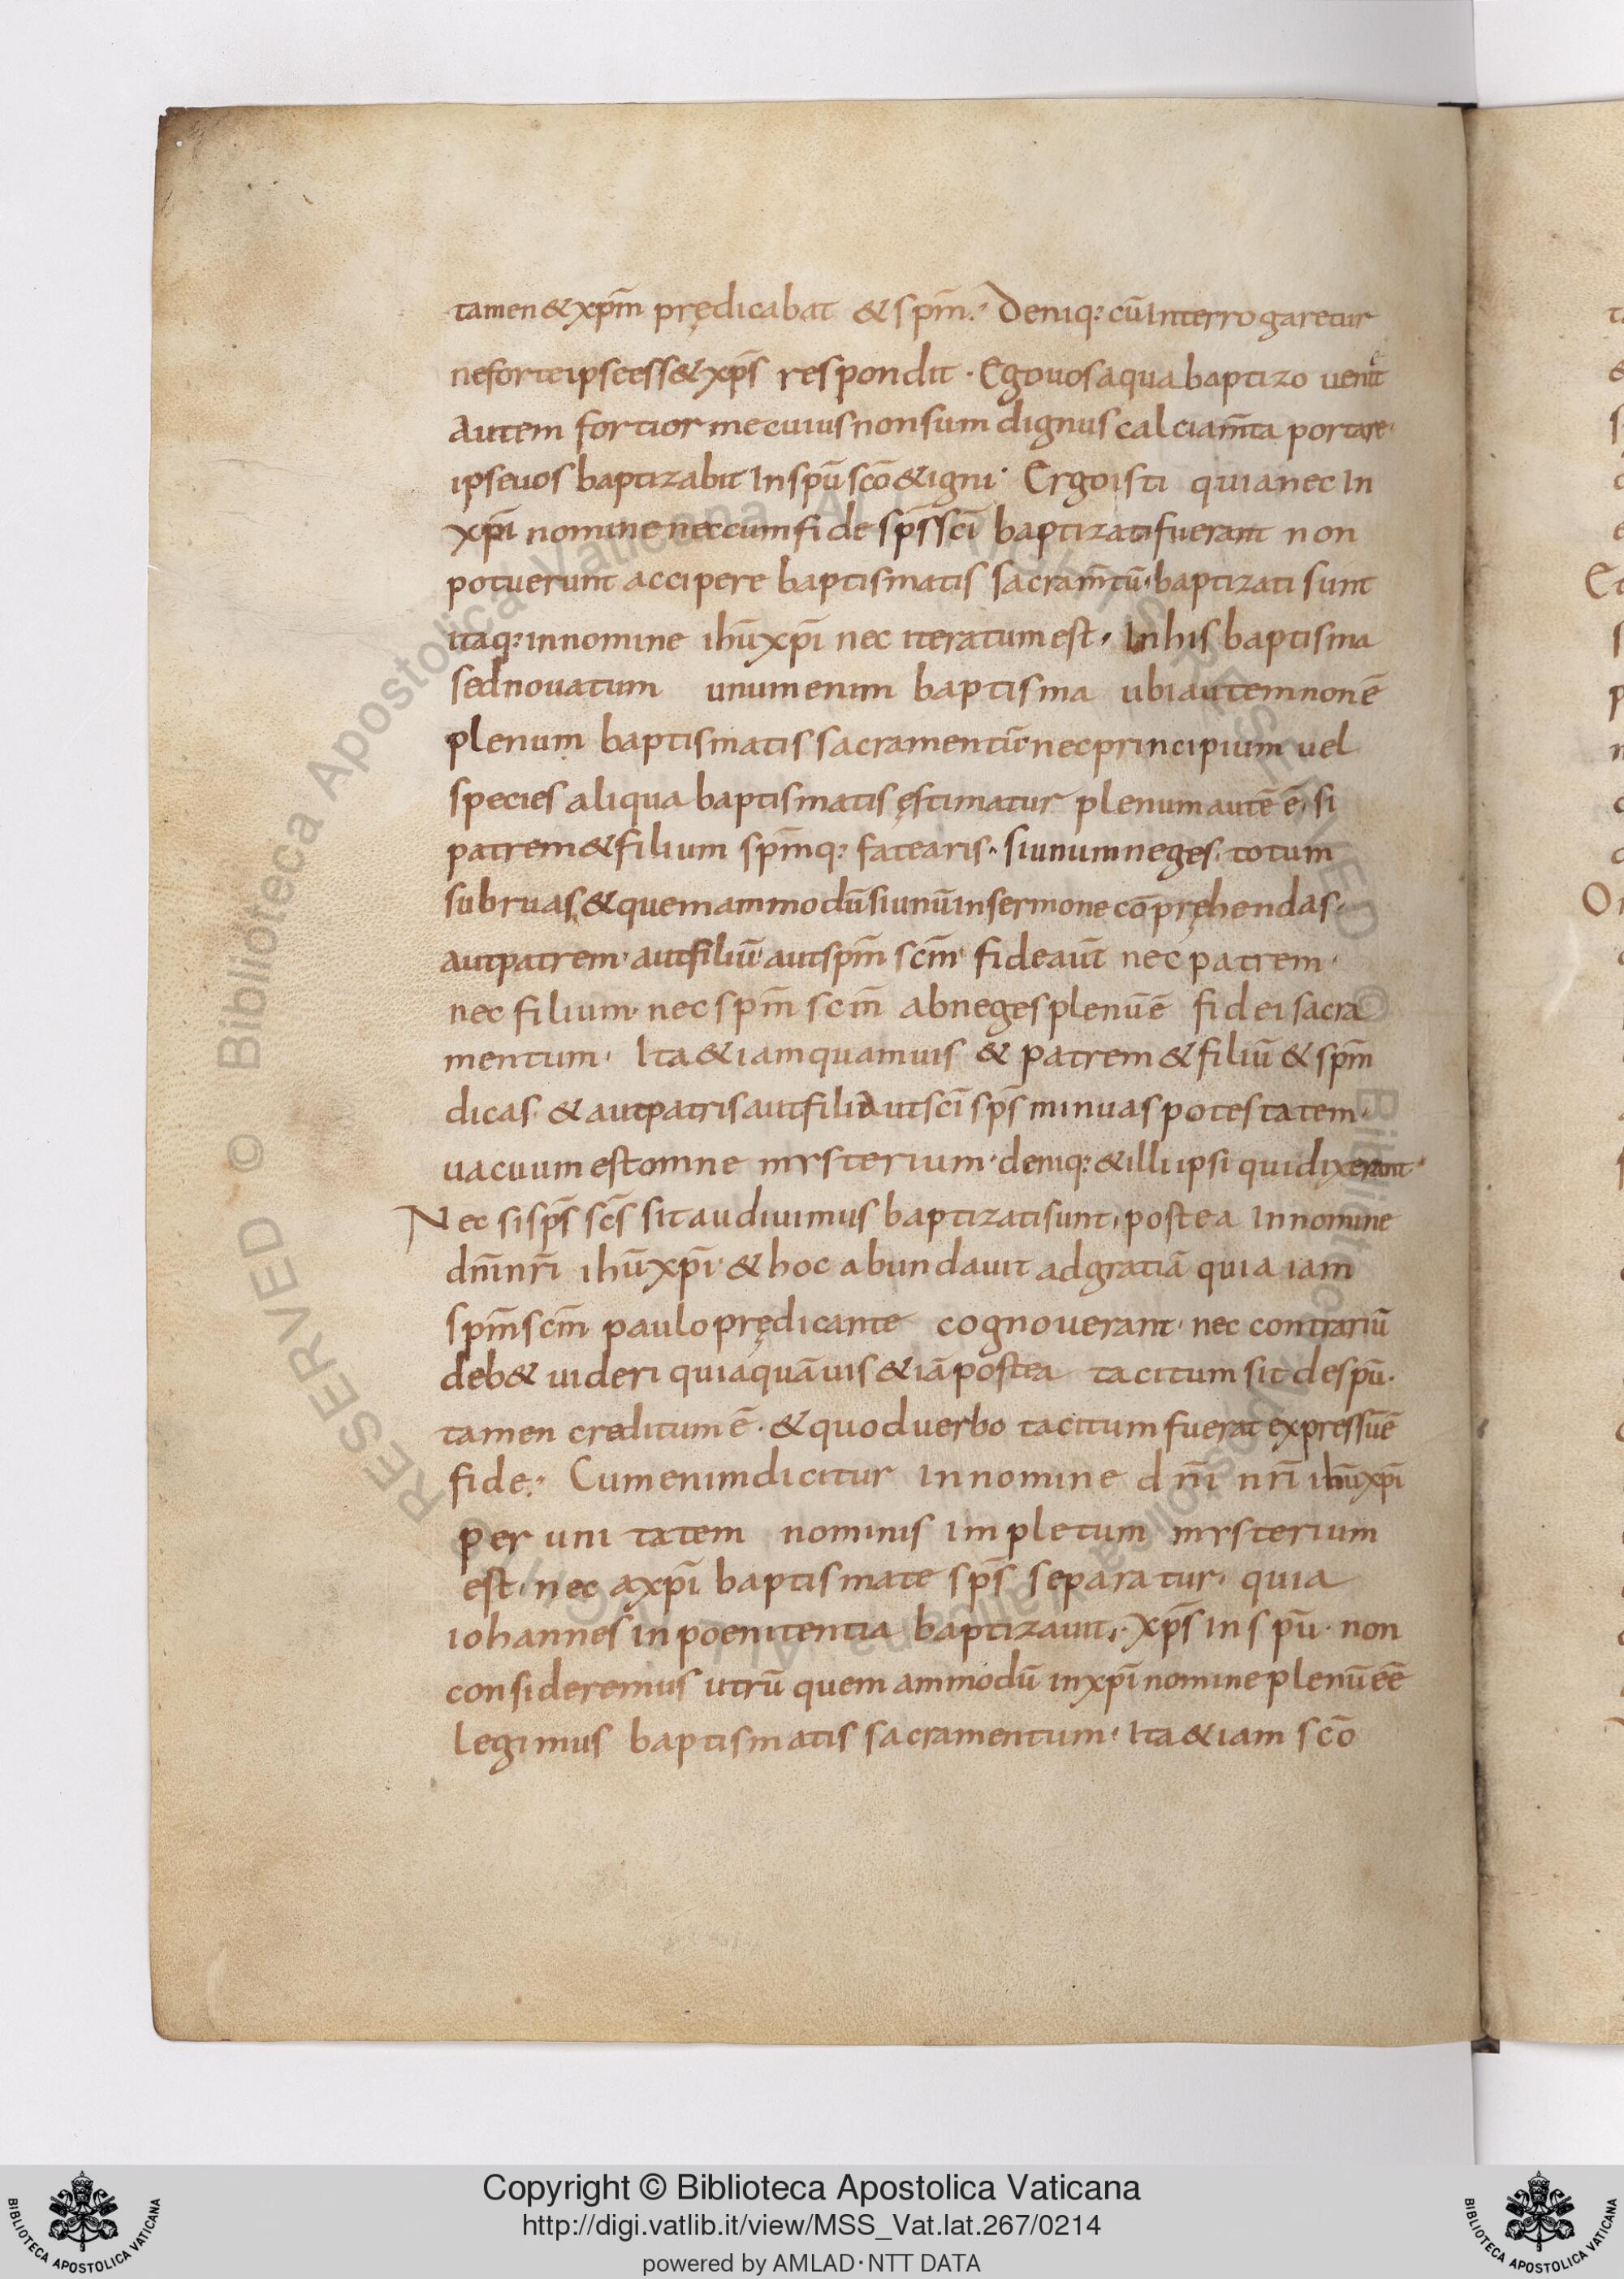 tamen & xp̄m prędicabat & sp̄m. Deniq: cū Interrogaretur
ne forte ipse ess& xp̄s respondit. Ego uos aqua baptizo uenit
autem fortior me cuius non sum dignus calciam̄ta portare.
ipse uos baptizabit In sp̄u sc̄o & igni. Ergo isti quia nec In
xp̄i nomine nec cum fide sp̄s sc̄i baptizati fuerant non
potuerunt accipere baptismatis sacram̄tū. baptizati sunt
itaq: in nomine ihū xp̄i nec iteratum est. In his baptisma
sed nouatum unum enim baptisma ubi autem non ē
plenum baptismatis sacramentū nec principium uel
species aliqua baptismatis ęstimatur plenum autē ē, si
patrem & filium sp̄mq: fatearis. si unum neges. totum
subruas. & quemammodū si unū in sermone cōpręhendas.
aut patrem. aut filiū. aut sp̄m sc̄m. fide aūt nec patrem.
nec filium. nec sp̄m sc̄m abneges plenū ē fidei sacra
mentum. Ita & iam quamuis & patrem & filiū & sp̄m
dicas. & aut patris aut filii aut sc̄i sp̄s minuas potestatem.
uacuum est omne mysterium. deniq: & illi ipsi qui dixerant.
Nec si sp̄s sc̄s sit audiuimus baptizati sunt, postea In nomine
dn̄i nr̄i ihū xp̄i. & hoc abundauit ad gratiā quia iam
sp̄m sc̄m paulo prędicante cognouerant. nec contrariū
deb& uideri quia quāuis & iā postea tacitum sit de sp̄u.
tamen creditum ē. & quod uerbo tacitum fuerat expressū ē
fide. Cum enim dicitur In nomine dn̄i nr̄i ihū xp̄i
per unitatem nominis Impletum mysterium
est, nec a xp̄i baptismate sp̄s separatur. quia
iohannes in poenitentia baptizauit. xp̄s in sp̄u. non
consideremus utrū quemammodū in xp̄i nomine plenū eē
legimus baptismatis sacramentum. Ita & iam sc̄o
Copyright © Biblioteca Apostolica Vaticana
http://digi.vatlib.it/view/MSS_Vat.lat.267/0214
powered by AMLAD · NTT DATA
BIBLIOTECA APOSTOLICA VATICANA
BIBLIOTECA APOSTOLICA VATICANA